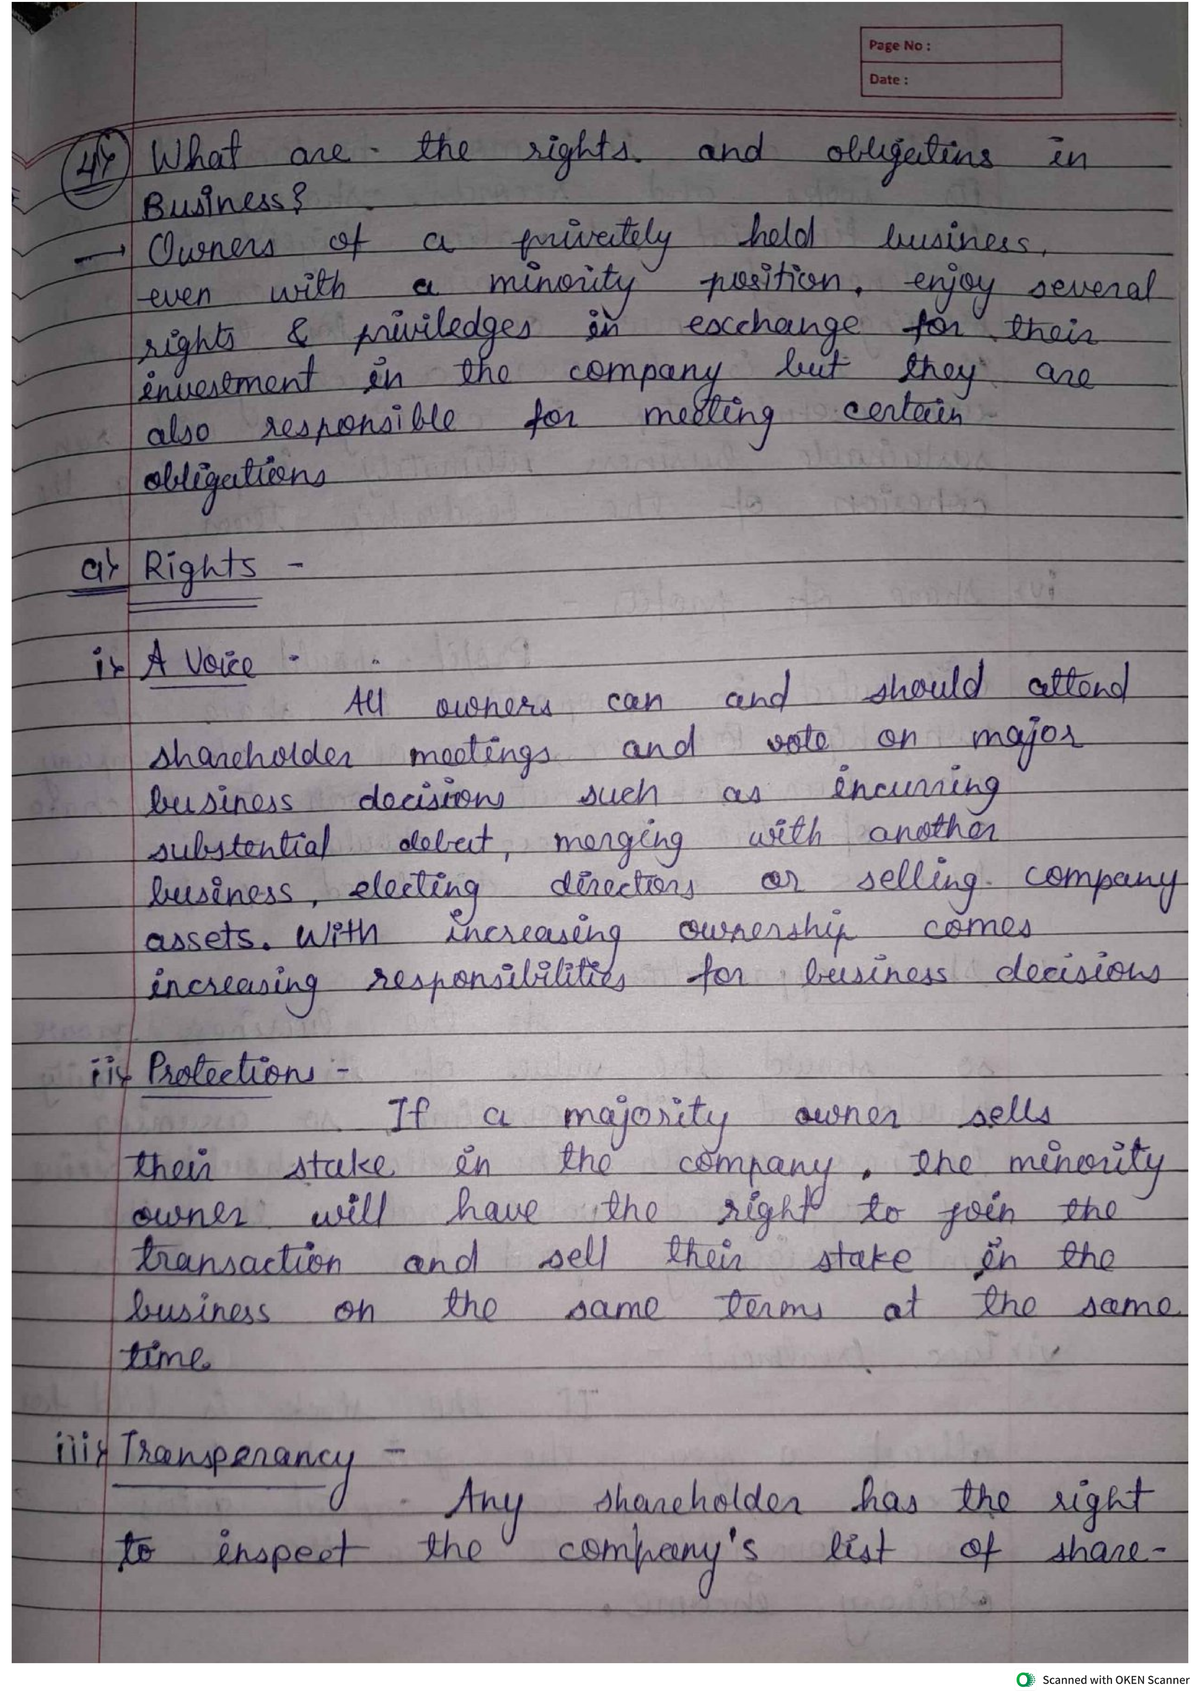 Page No :
Date :
4) What are the rights and obligatins in
Business?
→ Owners of a privately held business,
even with a minority position, enjoy several
rights & priviledges in exchange for their
investment in the company but they are
also responsible for meeting certain
obligations
a) Rights -
i) A Voice -
All owners can and should attend
shareholder meetings and vote on major
business decisions such as incurring
substential debet, merging with another
business, electing directors or selling company
assets. With increasing ownership comes
increasing responsibilities for business decisions
ii) Protections -
If a majority owner sells
their stake in the company, the minority
owner will have the right to join the
transaction and sell their stake in the
business on the same terms at the same
time.
iii) Transperancy -
Any shareholder has the right
to inspect the company's list of share-
Scanned with OKEN Scanner